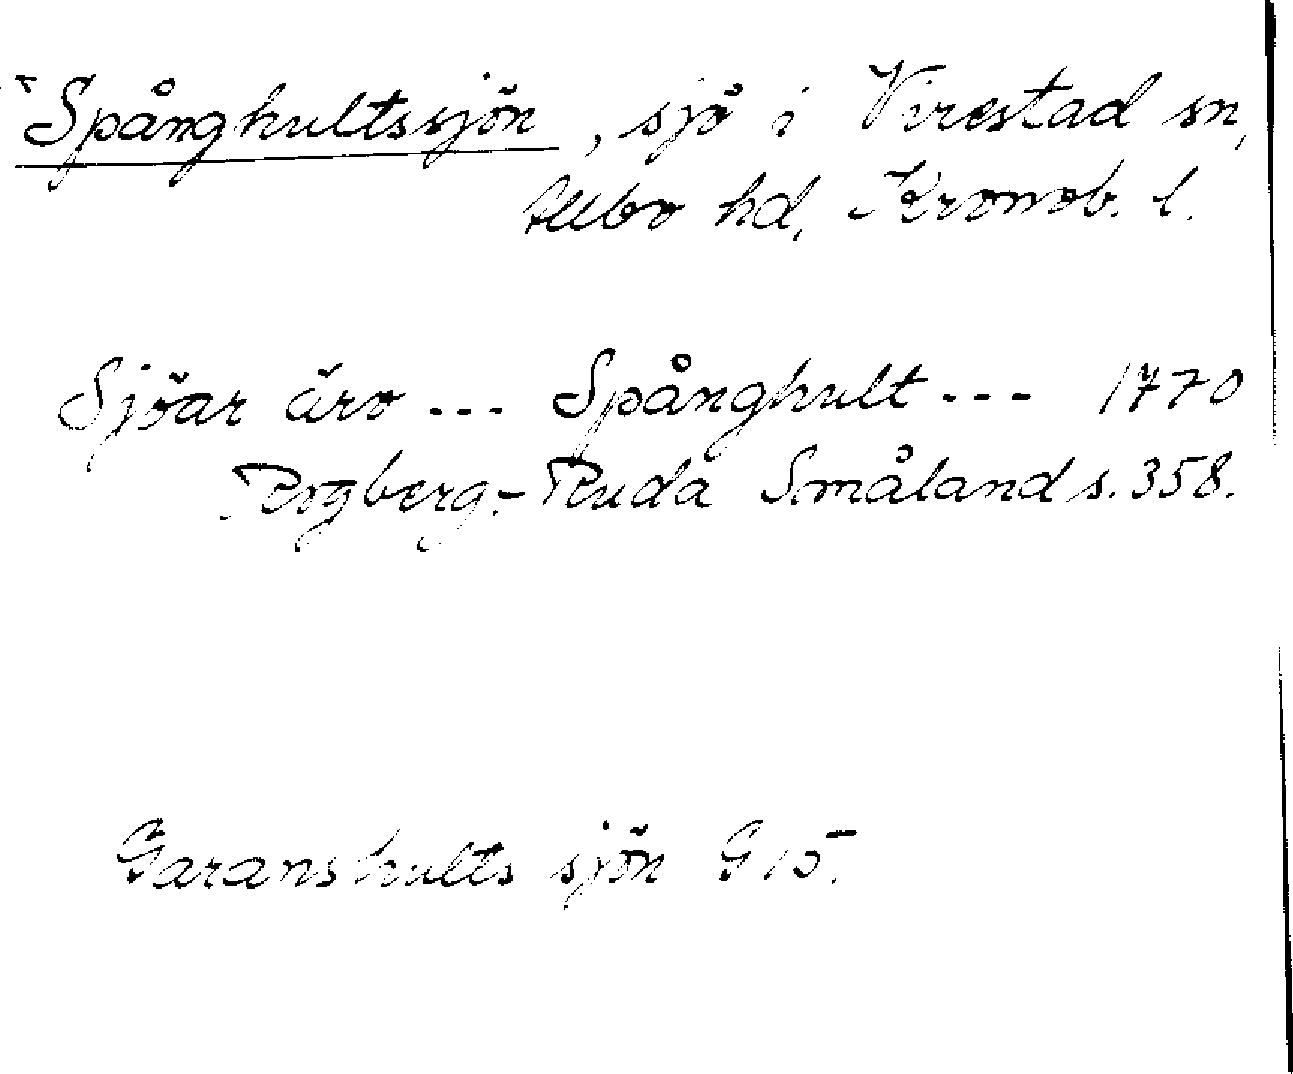 Spånghultssjön, sjö i Virestad sn,
Allbo hd, Kronob. l.
Sjöar äro --- Spånghult --- 1770
Rogberg-Ruda Småland s. 358.
Garanshults sjön G15.